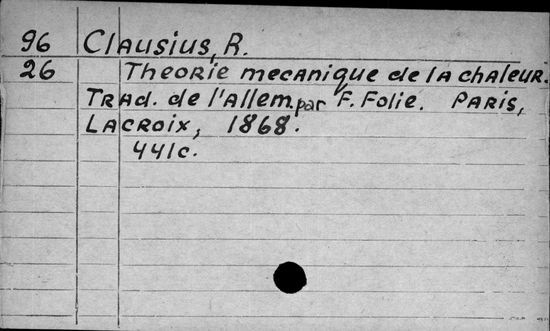 96 Clausius, R.
26 Theorie mecanique de la chaleur.
Trad. de l'Allem. par F. Folie. Paris,
Lacroix, 1868.
441c.